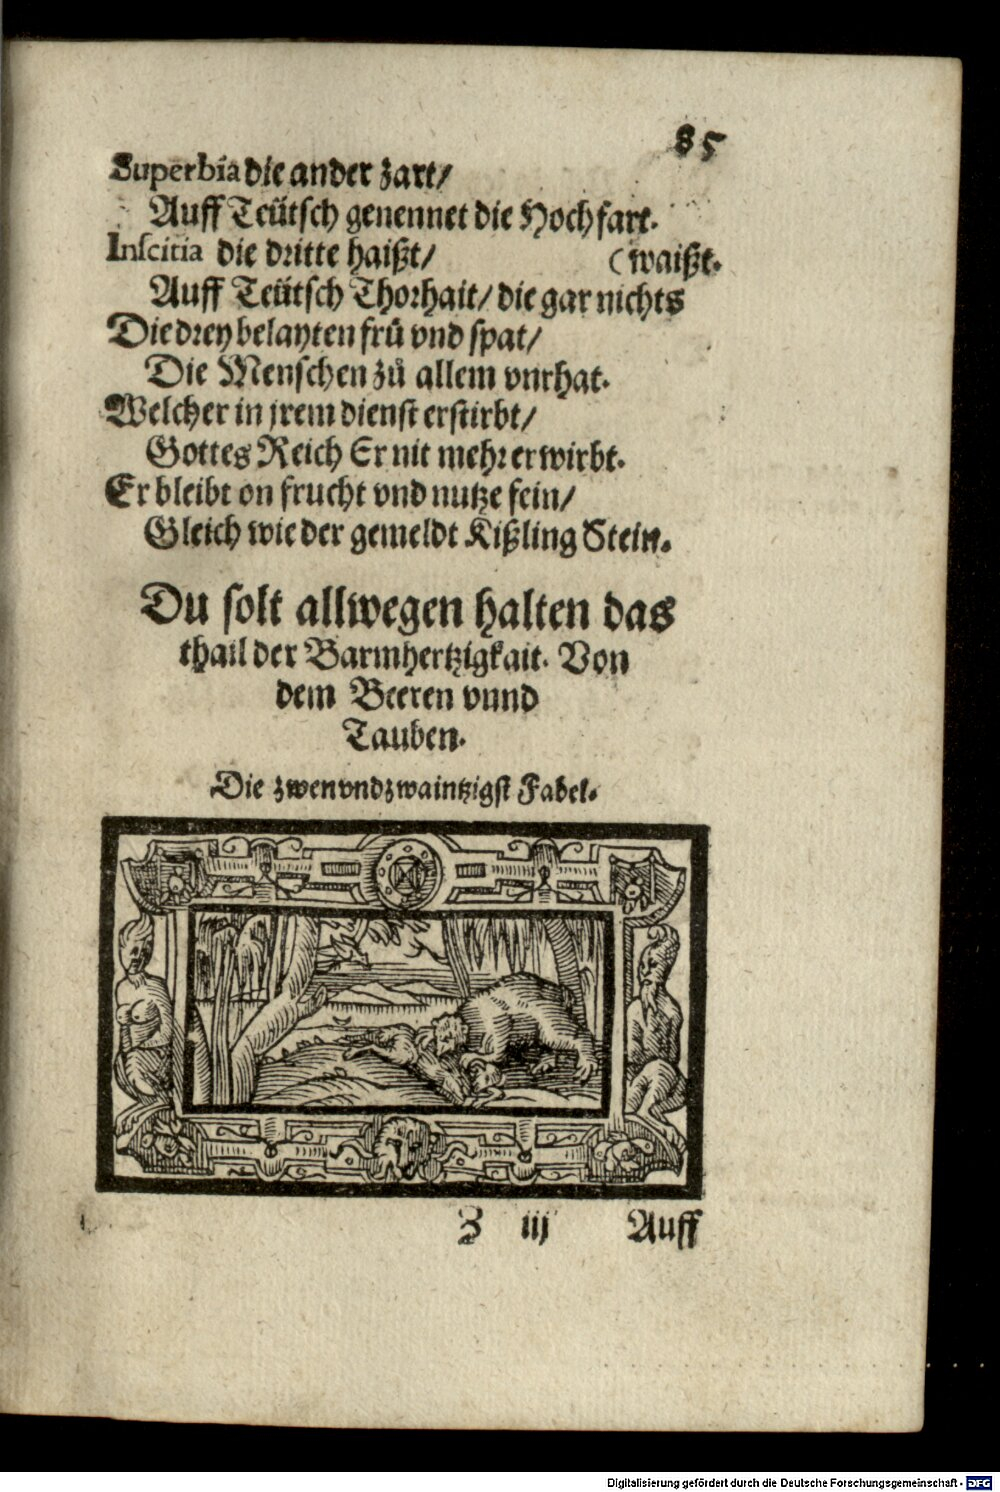 85
Superbia die ander zart/
Auff Teütsch genennet die Hochfart.
Inscitia die dritte haißt/ (waißt.
Auff Teütsch Thorhait/ die gar nichts
Die drey belayten frů vnd spat/
Die Menschen zů allem vnrhat.
Welcher in jrem dienst erstirbt/
Gottes Reich Er nit mehr erwirbt.
Er bleibt on frucht vnd nutze fein/
Gleich wie der gemeldt Kißling Stein.
Du solt allwegen halten das
thail der Barmhertzigkait. Von
dem Beeren vnnd
Tauben.
Die zwenvndzwaintzigst Fabel.
Z iij Auff
Digitalisierung gefördert durch die Deutsche Forschungsgemeinschaft - DFG